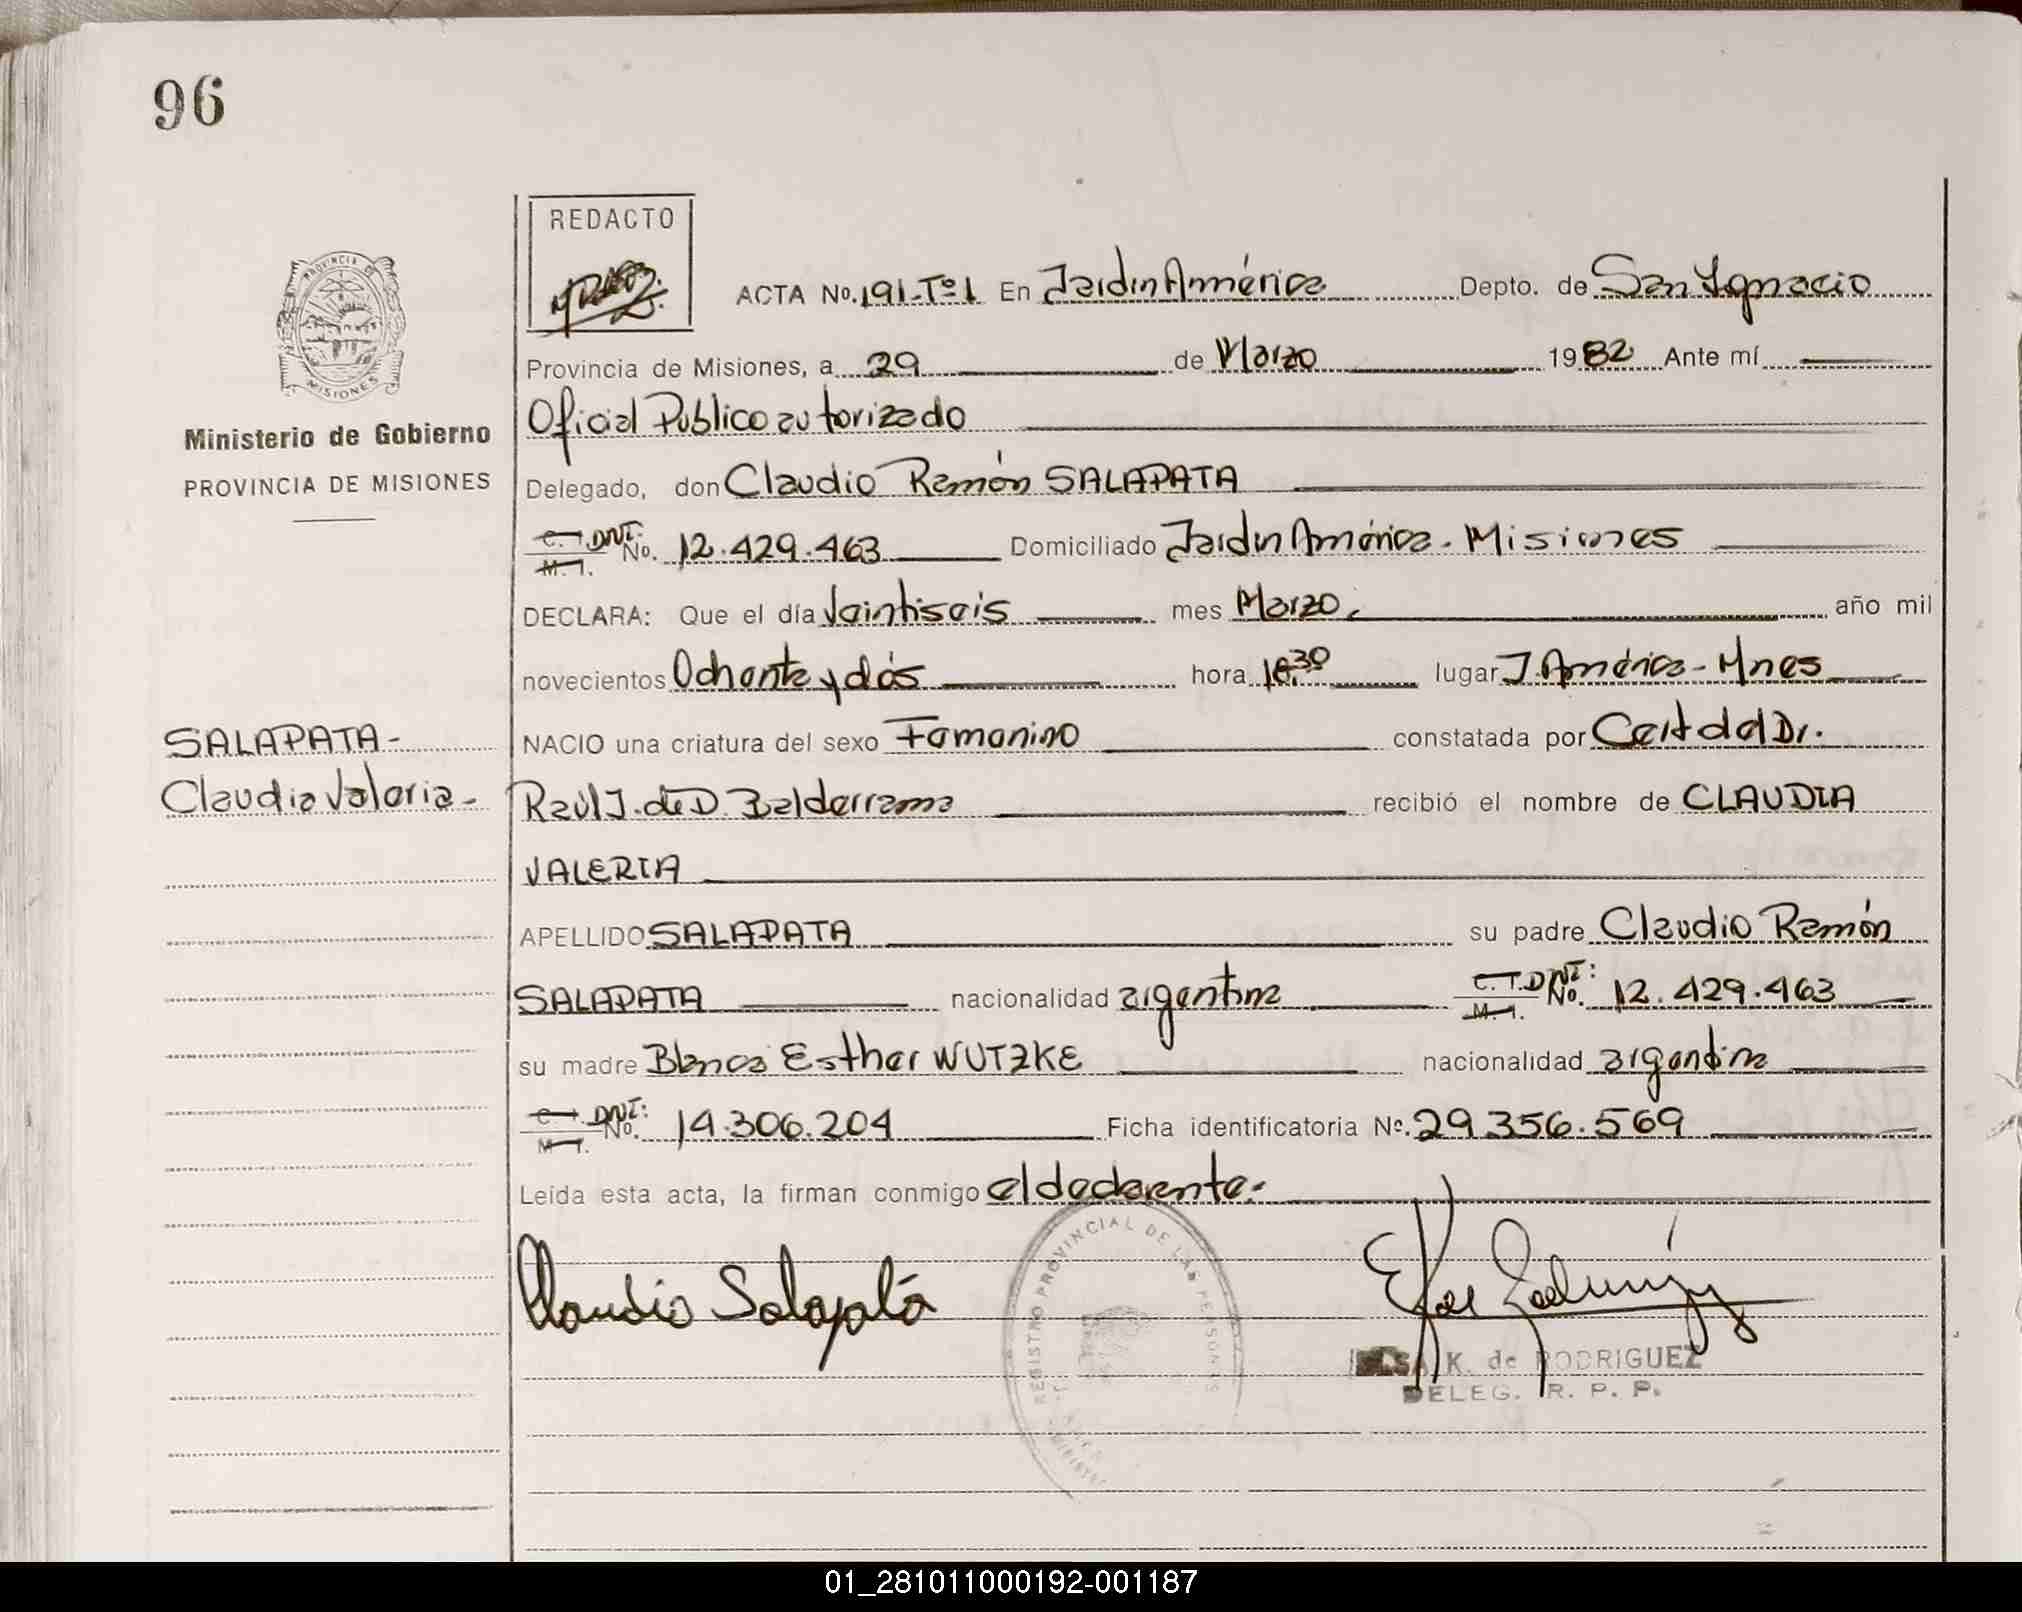 96
REDACTO
PROVINCIA DE
MISIONES
ACTA No. 191-Tº1 En Jardin América Depto. de San Ignacio
Provincia de Misiones, a 29 de Marzo 1982 Ante mí
Ministerio de Gobierno
Oficial Publico autorizado
PROVINCIA DE MISIONES
Delegado, don Claudio Ramón SALAPATA
C. I. DNI: No. 12.429.463 Domiciliado Jardin América - Misiones
M. I.
DECLARA: Que el día Veintiseis mes Marzo. año mil
novecientos Ochenta y dós hora lugar J. América - Mnes
SALAPATA-
NACIO una criatura del sexo Femenino constatada por Cert del Dr.
Claudia Valeria-
Raúl J. de D. Balderrama recibió el nombre de CLAUDIA
VALERIA
APELLIDO SALAPATA su padre Claudio Ramón
SALAPATA nacionalidad argentina C. I. DNI: No. 12.429.463
M. I.
su madre Blanca Esther WUTZKE nacionalidad argentina
C. I. DNI: No. 14.306.204 Ficha identificatoria Nº. 29.356.569
M. I.
Leída esta acta, la firman conmigo el declarente.
REGISTRO PROVINCIAL DE LAS PERSONAS
Claudio Salapatá
ELSA K. de RODRIGUEZ
DELEG. R. P. P.
01_281011000192-001187